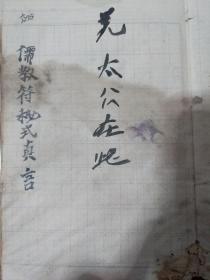 羌太公在此
儒教符秘式真言